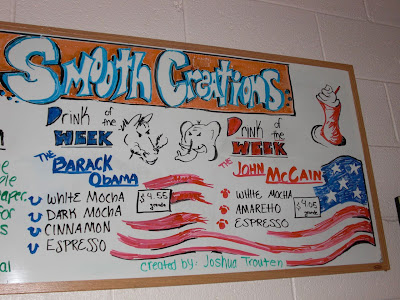 Smooth Creations
Drink of the WEEK
THE BARACK OBAMA
WHITE MOCHA
DARK MOCHA
CINNAMON
ESPRESSO
$4.55 grande
Drink of the WEEK
THE JOHN McCAIN
WHITE MOCHA
AMARETTO
ESPRESSO
$4.05 grande
created by: Joshua Trouten